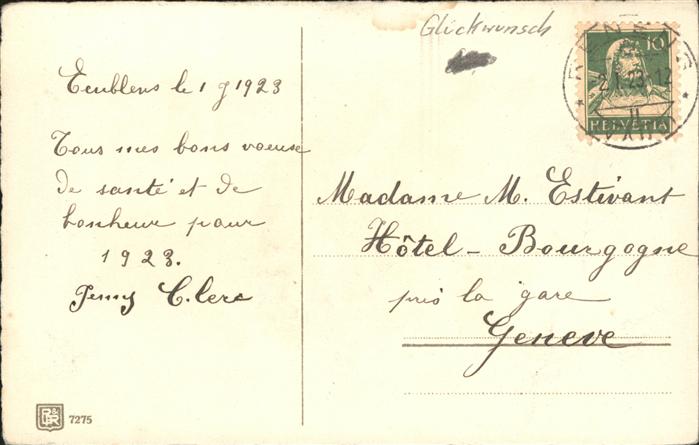 Glückwunsch
10
RENENS
2.I.23-12
HELVETIA
Ecublens le 1 j 1923
Tous mes bons voeuse
de santé et de
bonheur pour
1923.
Jenny Clerc
Madame M. Estivant
Hôtel - Bourgogne
près la gare
Geneve
7275